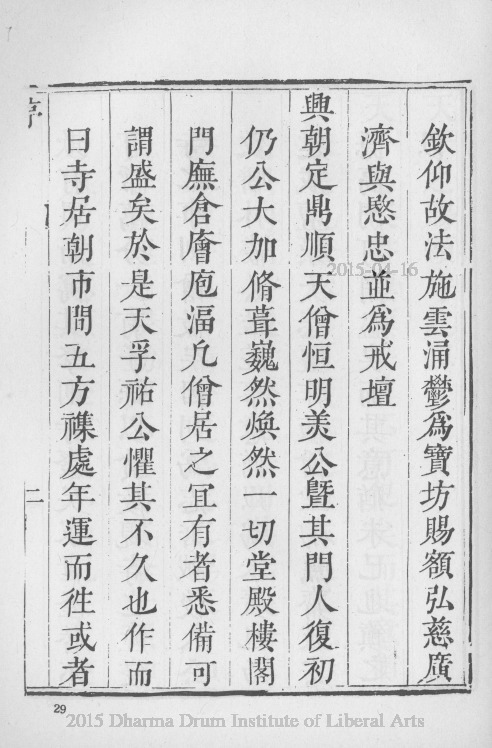 欽仰故法施雲涌鬱爲寶坊賜額弘慈廣
濟與愍忠並爲戒壇
興朝定鼎順天僧恒明美公曁其門人復初
仍公大加脩葺巍然煥然一切堂殿樓閣
門廡倉廥庖湢凢僧居之冝有者悉備可
謂盛矣於是天孚祐公懼其不久也作而
曰寺居朝市間五方襍處年運而徃或者
序
二
29
2015-04-16
2015 Dharma Drum Institute of Liberal Arts